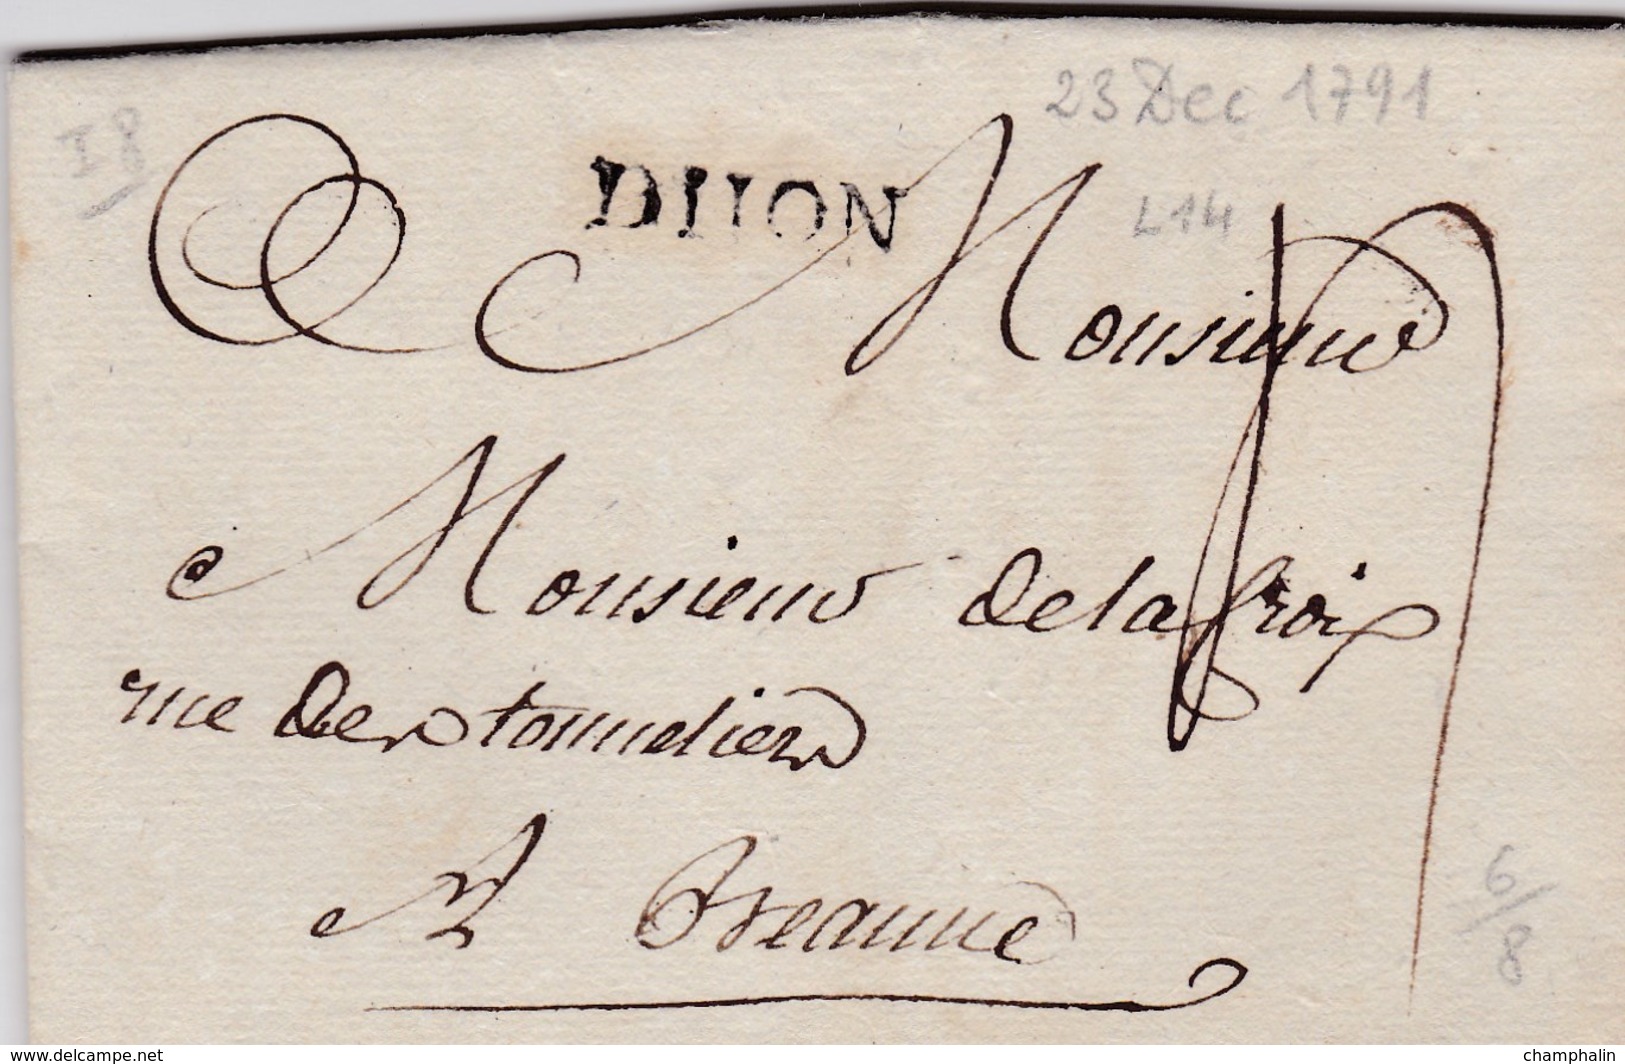 23 Dec 1791
I 8
DIJON
L14
Monsieur
Monsieur Delacroix
rue Des tonneliers
A Beaune
6/8
www.delcampe.net
champhalin